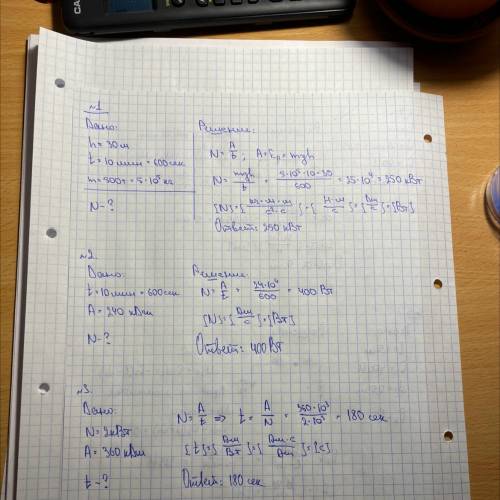 CA
№1
Дано:
h = 30 м
t = 10 мин = 600 сек
m = 500т = 5·10⁵ кг
N - ?
Решение:
N = A/t ; A = Eп = mgh
N = mgh/t = 5·10⁵·10·30/600 = 25·10⁴ = 250 кВт
[N] = [кг·м·м/с²·с] = [Н·м/с] = [Дж/с] = [Вт]
Ответ: 250 кВт
№2
Дано:
t = 10 мин = 600 сек
A = 240 кДж
N - ?
Решение:
N = A/t = 24·10⁴/600 = 400 Вт
[N] = [Дж/с] = [Вт]
Ответ: 400 Вт
№3
Дано:
N = 2 кВт
A = 360 кДж
t - ?
N = A/t => t = A/N = 360·10³/2·10³ = 180 сек
[t] = [Дж/Вт] = [Дж·с/Дж] = [с]
Ответ: 180 сек